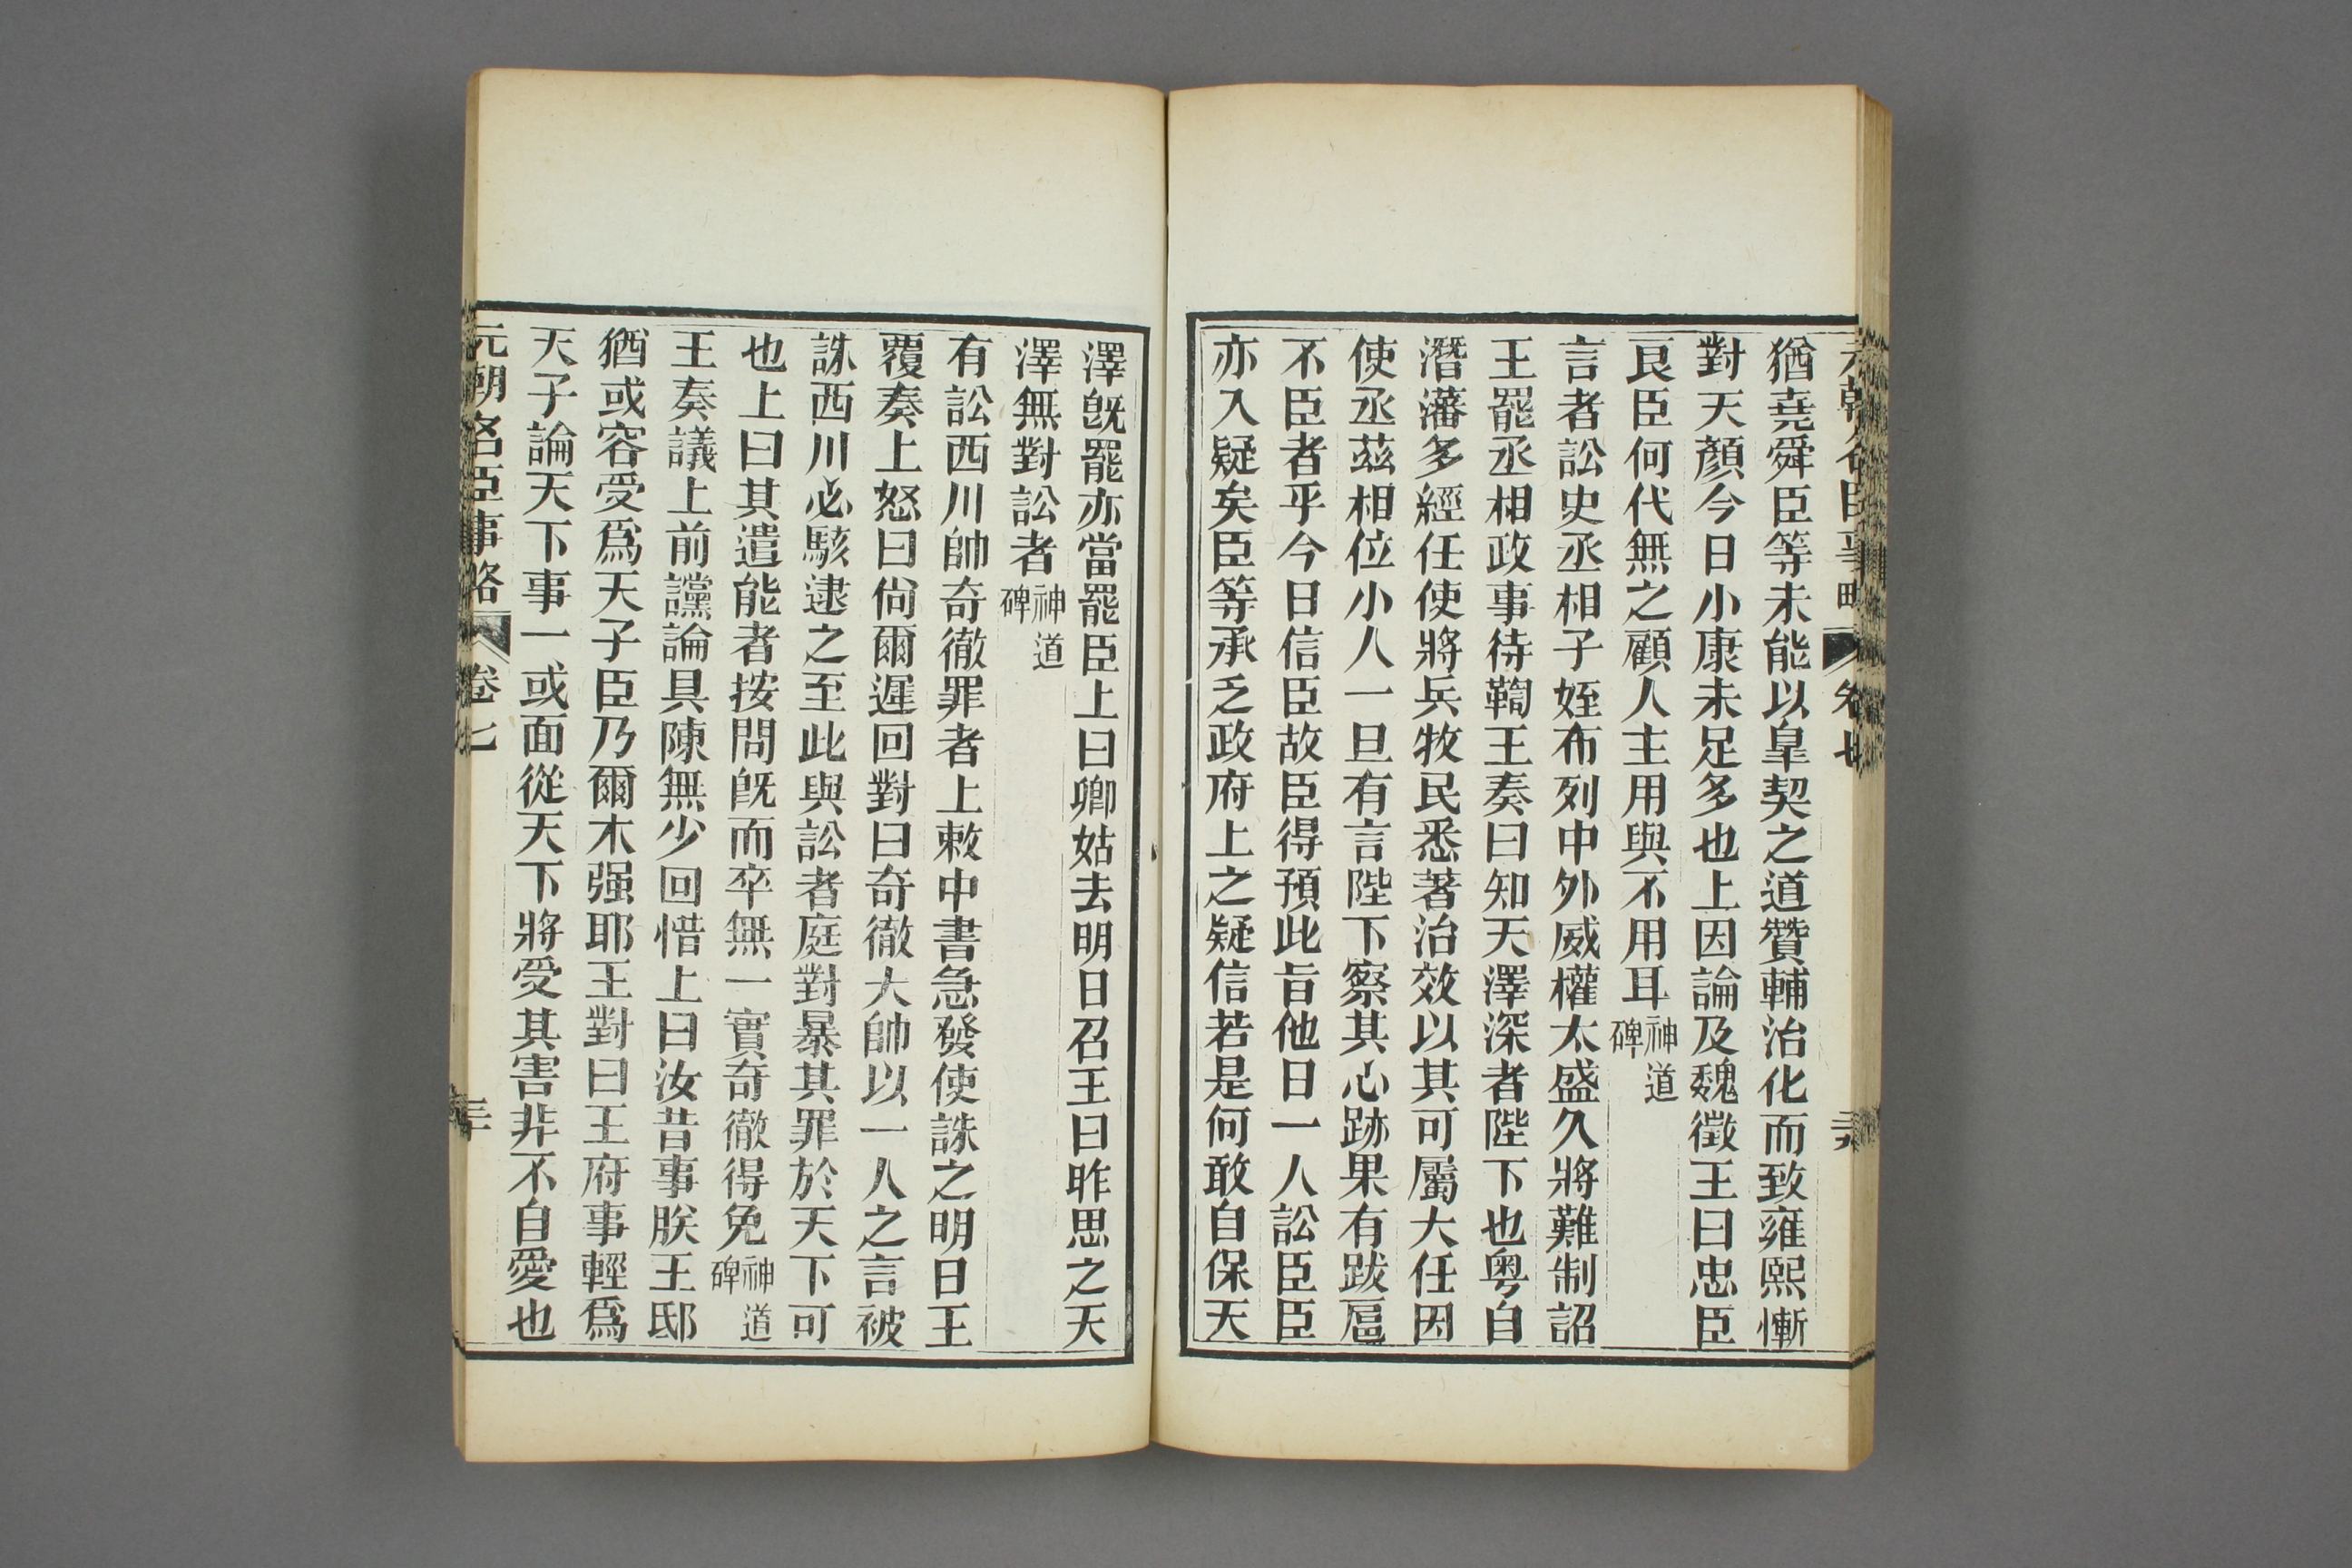 元朝名臣事略 卷七
猶堯舜臣等未能以臯契之道贊輔治化而致雍熙慚
對天顏今日小康未足多也上因論及魏徵王曰忠臣
良臣何代無之顧人主用與不用耳神道碑
言者訟史丞相子姪布列中外威權太盛久將難制詔
王罷丞相政事待鞫王奏曰知天澤深者陛下也粤自
潛藩多經任使將兵牧民悉著治效以其可屬大任因
使丞茲相位小人一旦有言陛下察其心跡果有跋扈
不臣者乎今日信臣故臣得預此旨他日一人訟臣臣
亦入疑矣臣等承乏政府上之疑信若是何敢自保天
澤旣罷亦當罷臣上曰卿姑去明日召王曰昨思之天
澤無對訟者神道碑
有訟西川帥奇徹罪者上敕中書急發使誅之明日王
覆奏上怒曰尙爾遲回對曰奇徹大帥以一人之言被
誅西川必駭逮之至此與訟者庭對暴其罪於天下可
也上曰其遣能者按問旣而卒無一實奇徹得免神道碑
王奏議上前讜論具陳無少回惜上曰汝昔事朕王邸
猶或容受爲天子臣乃爾木强耶王對曰王府事輕爲
天子論天下事一或面從天下將受其害非不自愛也
元朝名臣事略 卷七